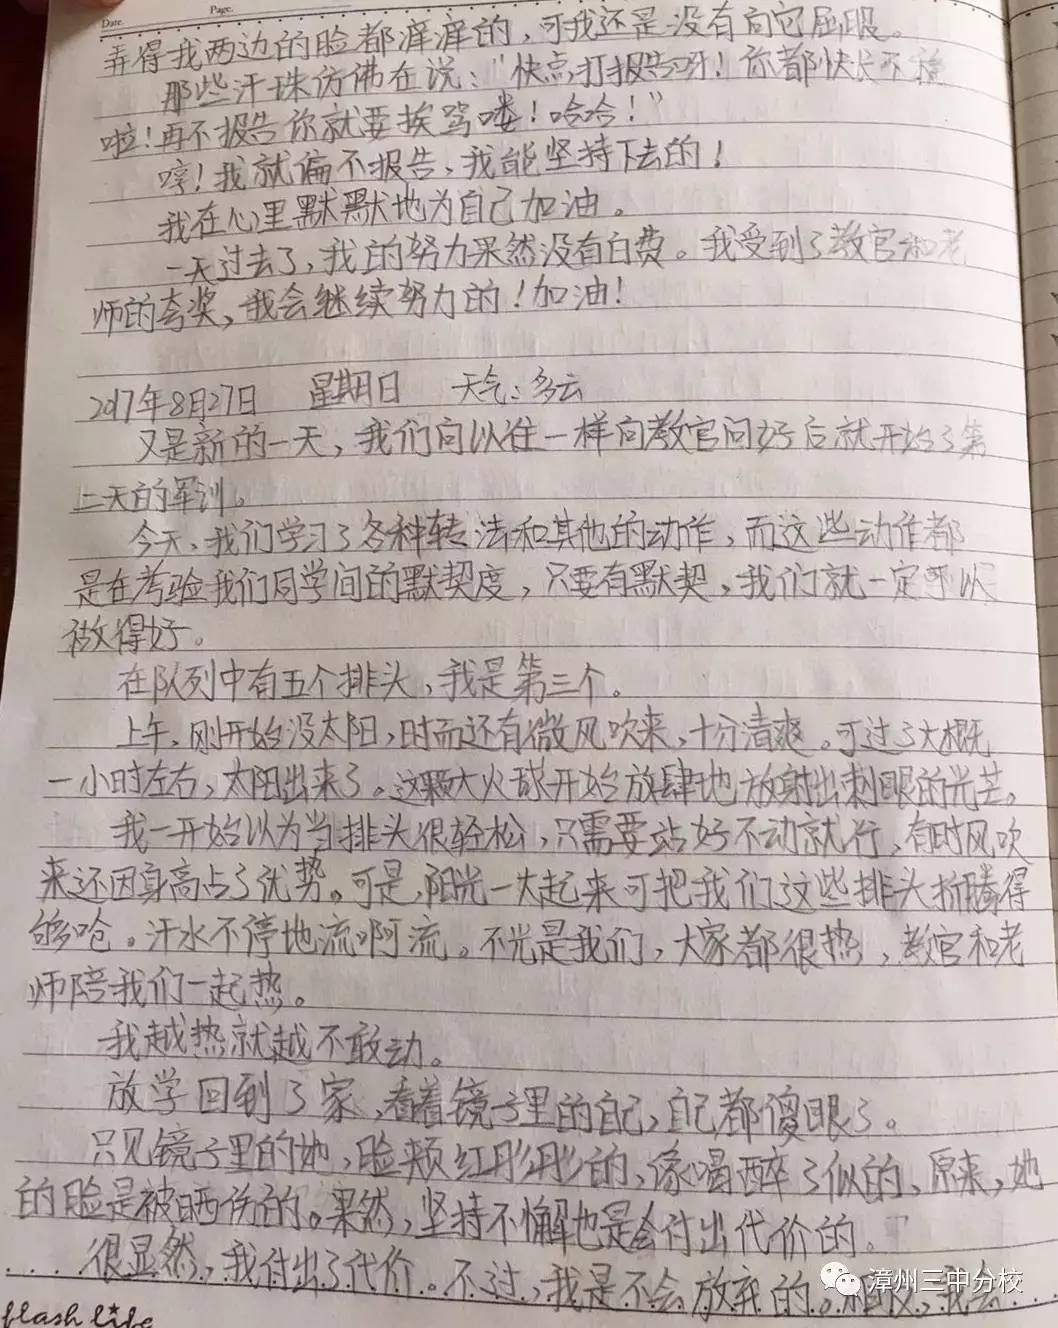 Date.    Page.
弄得我两边的脸都湿湿的，可我还是没有向它屈服。
那些汗珠仿佛在说："快点打报告呀！你都快
啦！再不报告你就要挨骂喽！哈哈！"
哼！我就偏不报告，我能坚持下去的！
我在心里默默地为自己加油。
一天过去了，我的努力果然没有白费。我受到了教官和老
师的夸奖，我会继续努力的！加油！
2017年8月27日 星期日 天气：多云
又是新的一天，我们向以往一样向教官问好后就开始了第
二天的军训。
今天，我们学习了各种转法和其他的动作，而这些动作都
是在考验我们同学间的默契度，只要有默契，我们就一定可以
做得好。
在队列中有五个排头，我是第三个。
上午，刚开始没太阳，时而还有微风吹来，十分清爽。可过了大概
一小时左右，太阳出来了。这颗大火球开始放肆地放射出刺眼的光芒。
我一开始以为当排头很轻松，只需要站好不动就行，有时风吹
来还因身高占了优势。可是，阳光一大起来可把我们这些排头折腾得
够呛。汗水不停地流啊流。不光是我们，大家都很热，教官和老
师陪我们一起热。
我越热就越不敢动。
放学回到了家，看着镜子里的自己，自己都傻眼了。
只见镜子里的她，脸颊红彤彤的，像喝醉了似的，原来，她
的脸是被晒伤的。果然，坚持不懈也是会付出代价的。
很显然，我付出了代价。不过，我是不会放弃的。相反，我会
flash life
漳州三中分校